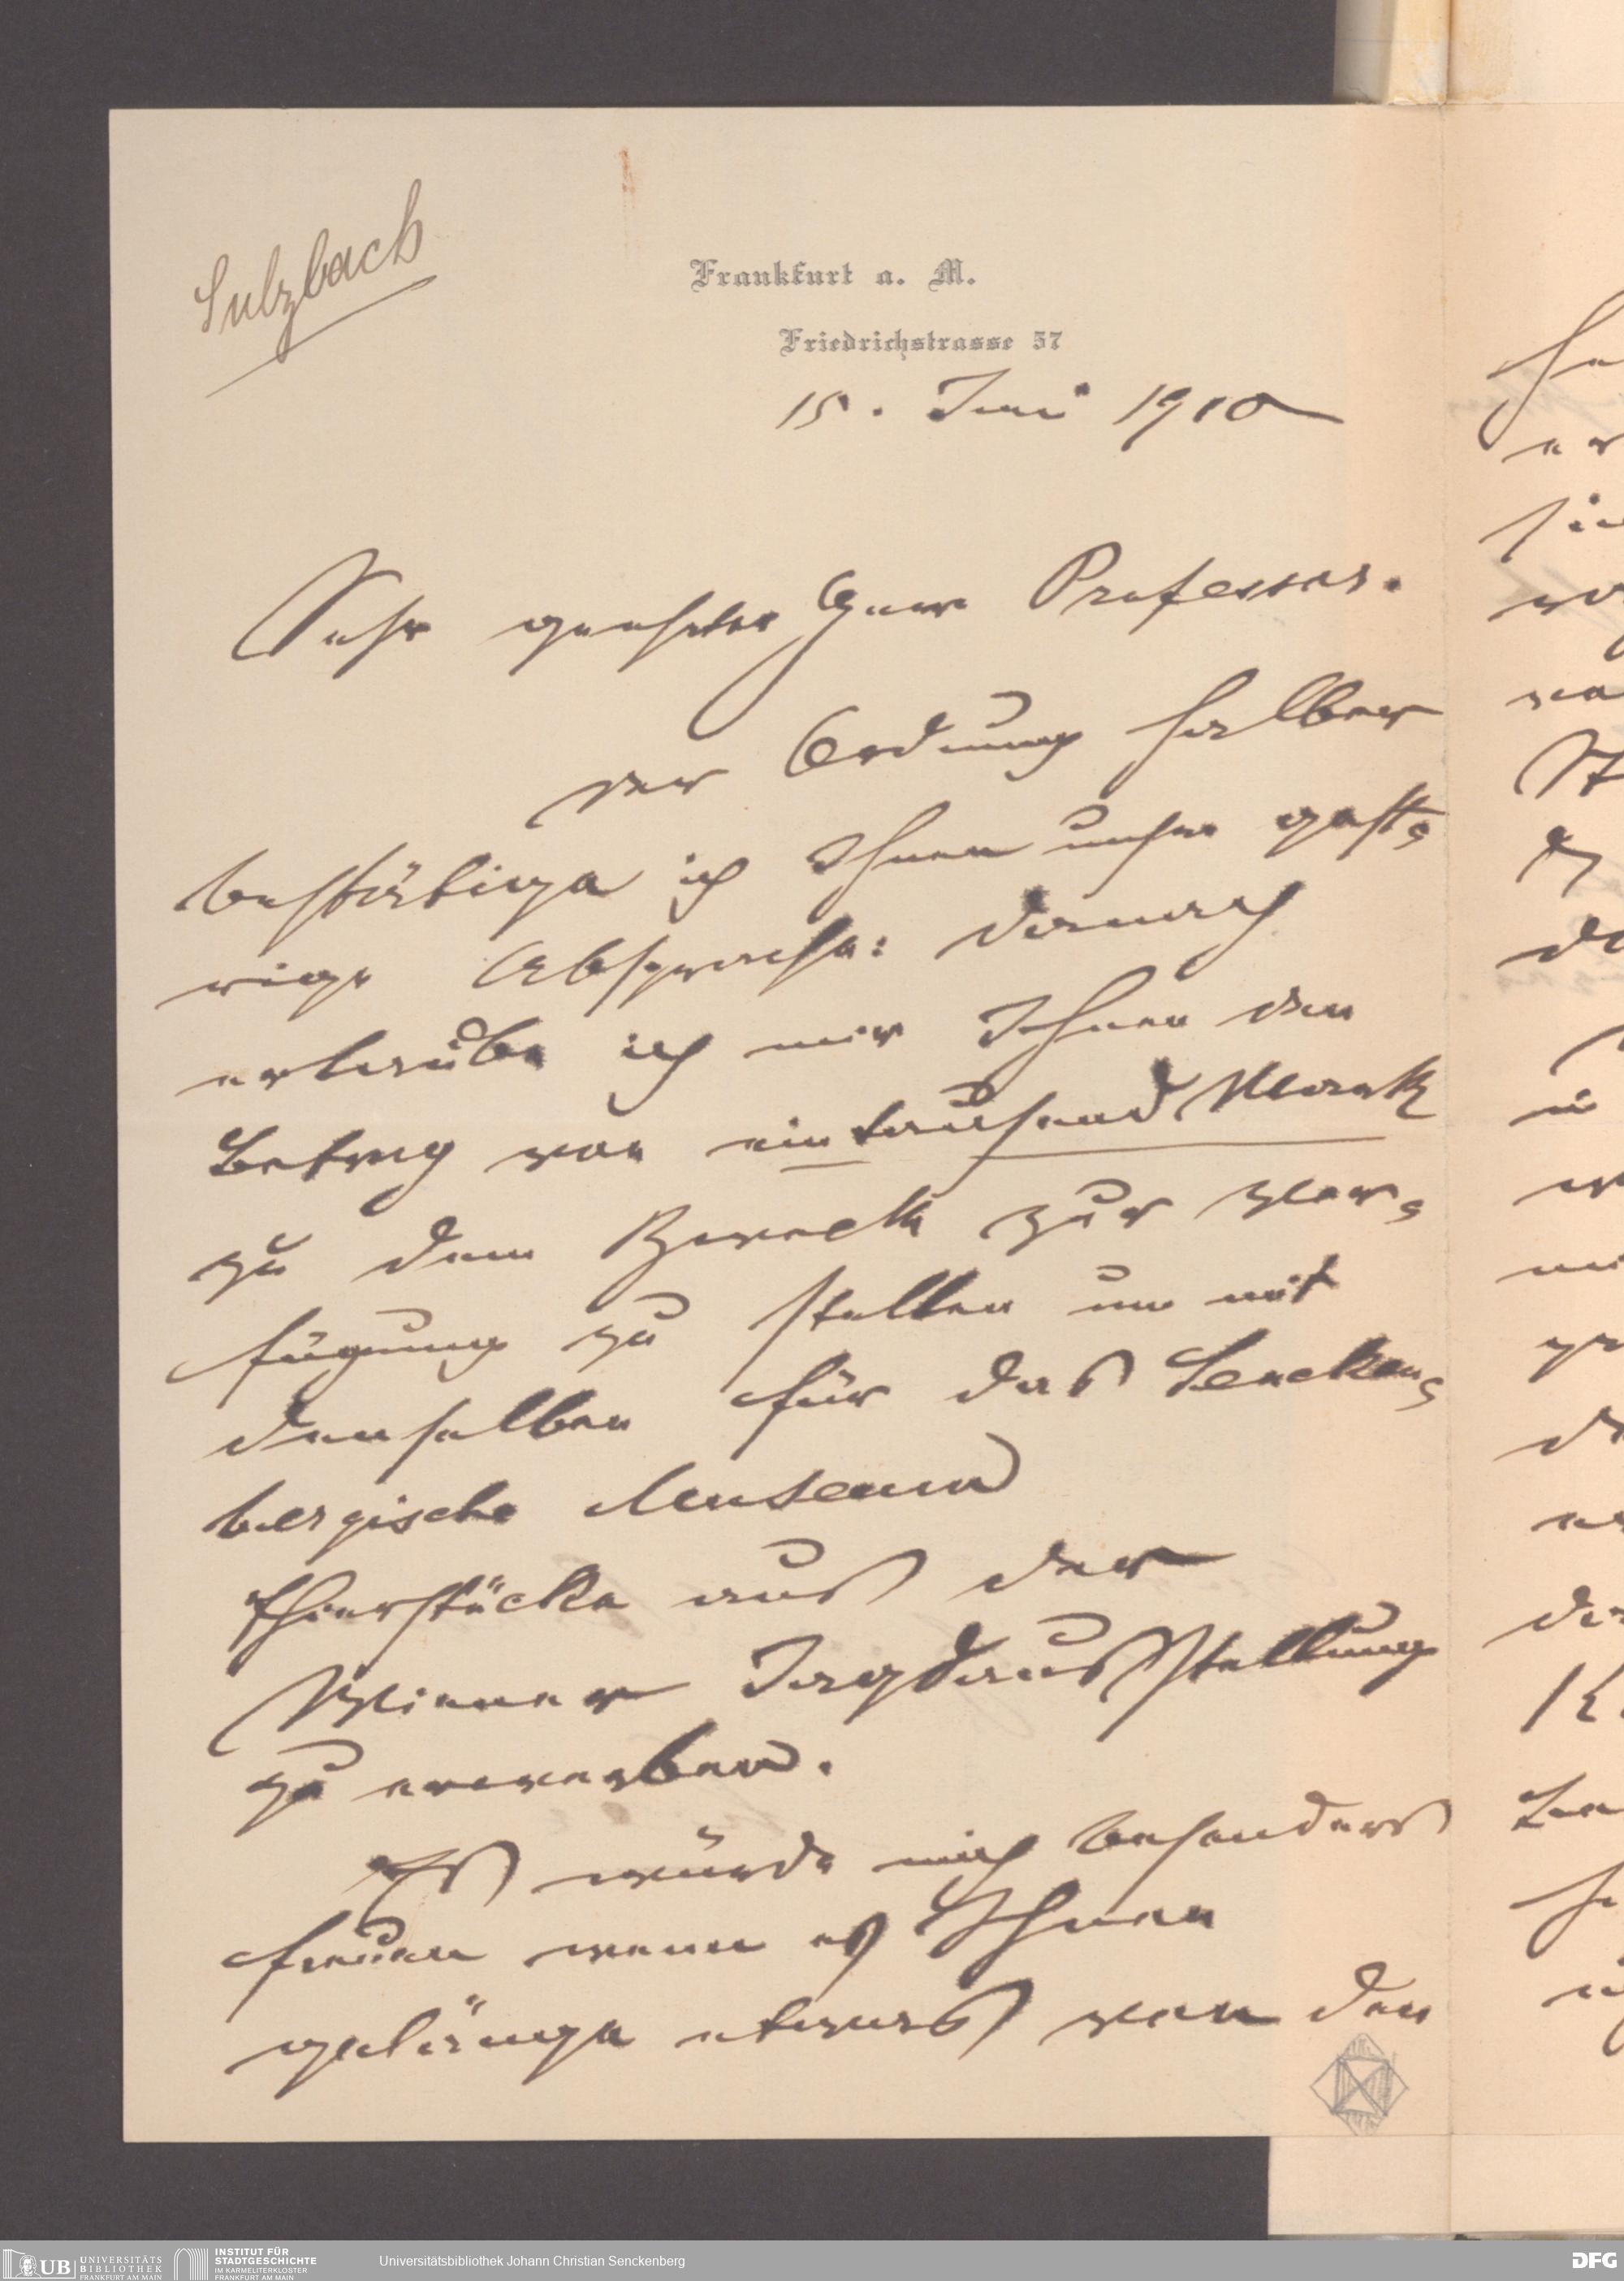 Sulzbach
Frankfurt a. M.
Friedrichstrasse 57
15. Juni 1910
Sehr geehrter Herr Professor.
der Ordnung halber
bestätige ich Ihnen unsre gest-
rige Absprache: danach
erlaube ich mir Ihnen den
Betrag von eintausend Mark
zu dem Zweck zur Ver-
fügung zu stellen um mit
demselben für das Sencken-
bergische Museum
Thierstücke aus der
Wiener Jagdausstellung
zu erwerben.
Es würde mich besonders
freuen wenn es Ihnen
gelänge etwas von den
UB UNIVERSITÄTS
BIBLIOTHEK
FRANKFURT AM MAIN
INSTITUT FÜR
STADTGESCHICHTE
IM KARMELITERKLOSTER
FRANKFURT AM MAIN
Universitätsbibliothek Johann Christian Senckenberg
DFG